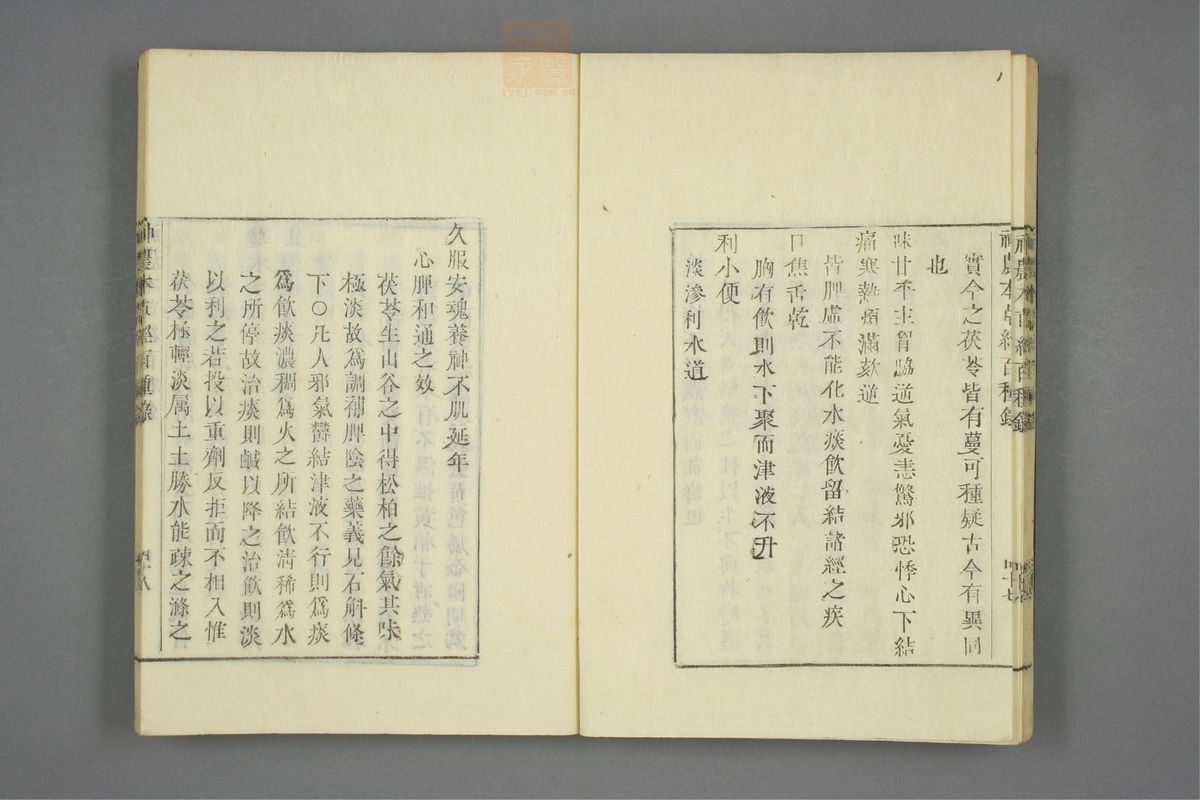 神農本草經百種錄
四十七
實今之茯苓皆有蔓可種疑古今有異同
也
味甘平主胷脇逆氣憂恚驚邪恐悸心下結
痛寒熱煩滿欬逆
皆脾虛不能化水痰飲留結諸經之疾
口焦舌乾
胸有飲則水下聚而津液不升
利小便
淡滲利水道
久服安魂養神不肌延年
心脾和通之效
茯苓生山谷之中得松柏之餘氣其味
極淡故爲調補脾陰之藥義見石斛條
下○凡人邪氣鬱結津液不行則爲痰
爲飲痰濃稠爲火之所結飲清稀爲水
之所停故治痰則鹹以降之治飲則淡
以利之若投以重劑反拒而不相入惟
茯苓極輕淡属土土勝水能疎之滌之
神農本草經百種錄
四十八
zyoj.com.cn